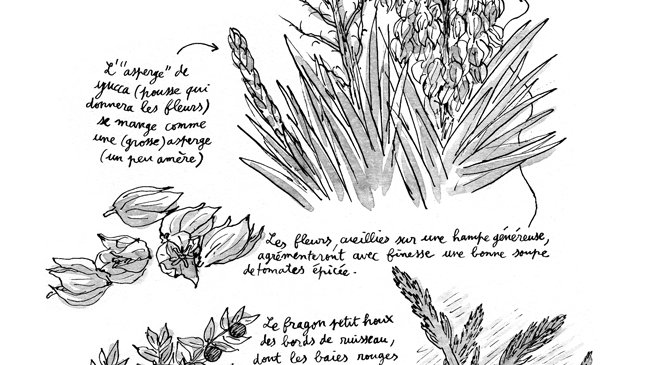 L'"asperge" de
yucca (pousse qui
donnera les fleurs)
se mange comme
une (grosse) asperge
(un peu amère)
Les fleurs, cueillies sur une hampe généreuse,
agrémenteront avec finesse une bonne soupe
de tomates épicée.
Le fragon petit houx
des bords de ruisseau,
dont les baies rouges